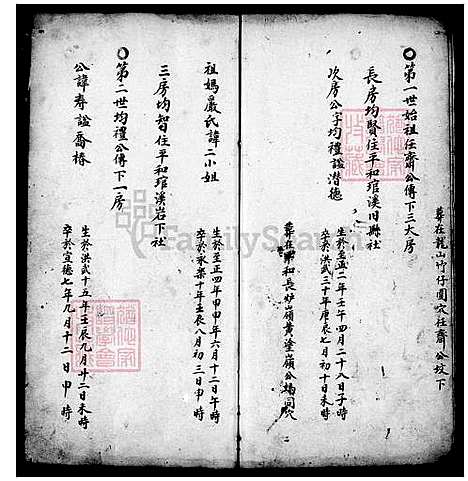 第一世始祖任齋公傳下三大房
葬在龍山竹仔園穴任齋公坟下
長房均賢住平和琯溪旧縣社
次房公字均禮謚潛德
生於至正二年壬午四月二十八日子時
卒於洪武三十年庚辰七月初十日未時
葬在平和長炉嶺黃塗嶺公媽同穴
祖媽嚴氏諱二小姐
生於至正四年甲申年六月十二日午時
卒於永樂十年壬辰八月初三日申時
三房均智住平和琯溪岩下社
第二世均禮公傳下一房
公諱寿謚喬椿
生於洪武十五年壬辰九月廿二日未時
卒於宣德七年九月十二日申時
FamilySearch